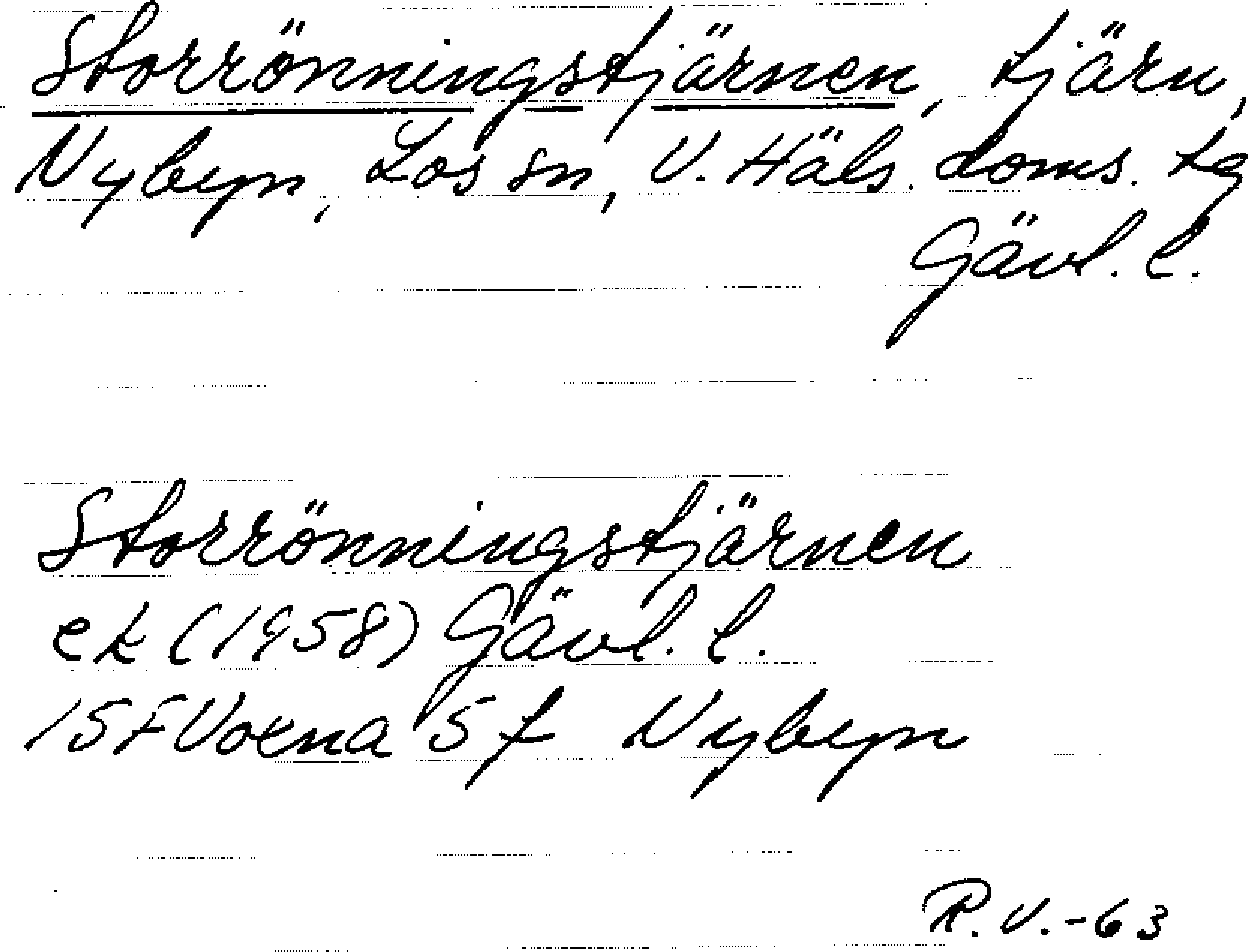 Storrönningstjärnen, tjärn,
Nybyn, Los sn, V. Häls. doms. tg
Gävl. l.
Storrönningstjärnen
ek (1958) Gävl. l.
15F Voxna 5f Nybyn
R.V.-63